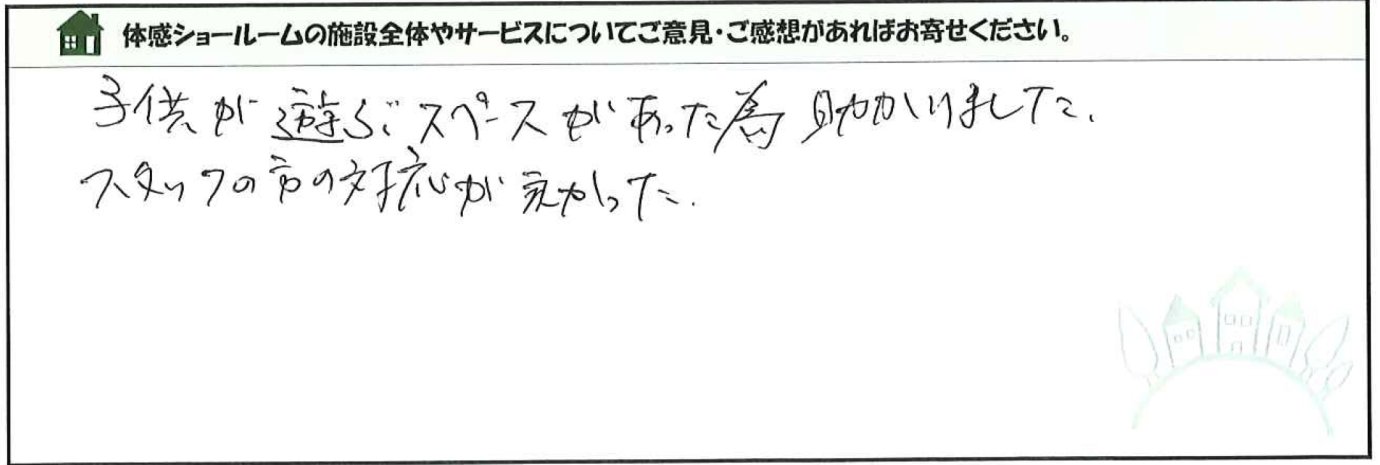 体感ショールームの施設全体やサービスについてご意見・ご感想があればお寄せください。
子供が遊ぶスペースがあった為助かりました.
スタッフの方の対応が良かった.